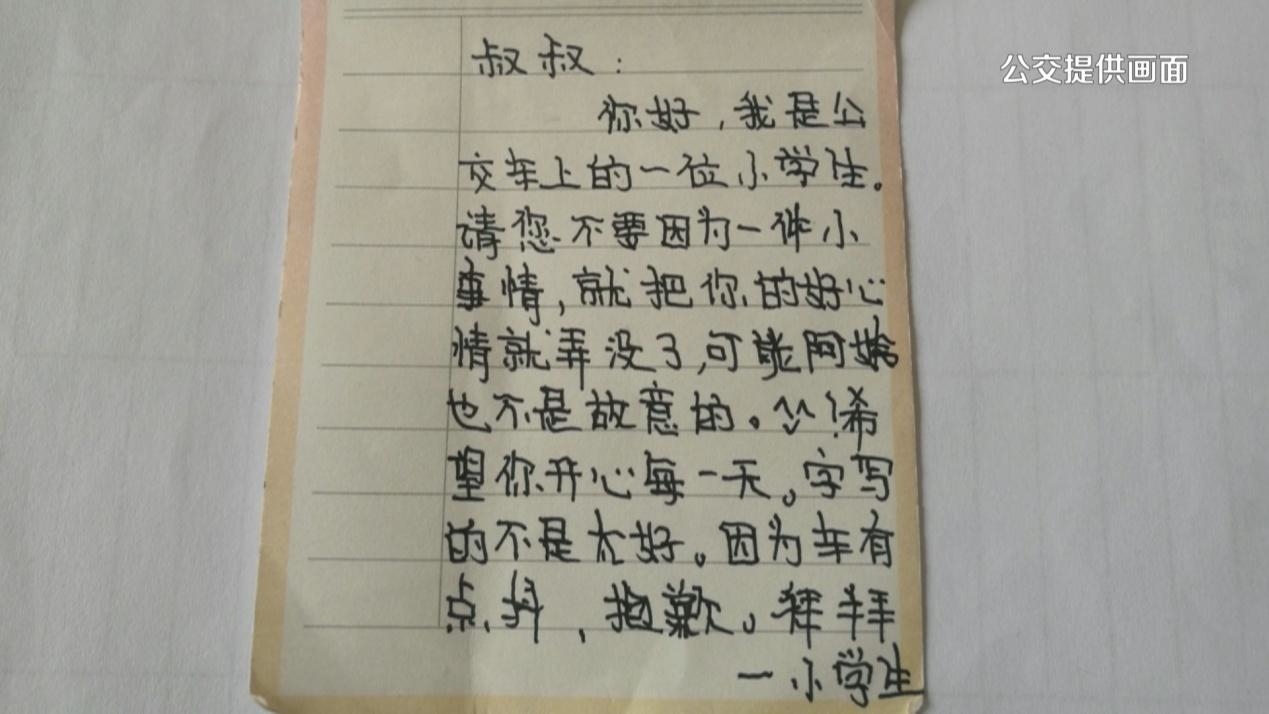 公交提供画面
叔叔：
你好，我是公
交车上的一位小学生。
请您不要因为一件小
事情，就把你的好心
情就弄没了，可能阿姨
也不是故意的。^^!希
望你开心每一天。字写
的不是太好。因为车有
点抖、抱歉。拜拜
一小学生